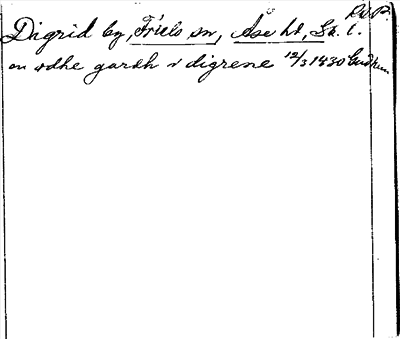 R.V.P.
Digrid by, Friels sn, Åse hd, Sk. l.
on ødhe gardh i digrene 12/3 1430